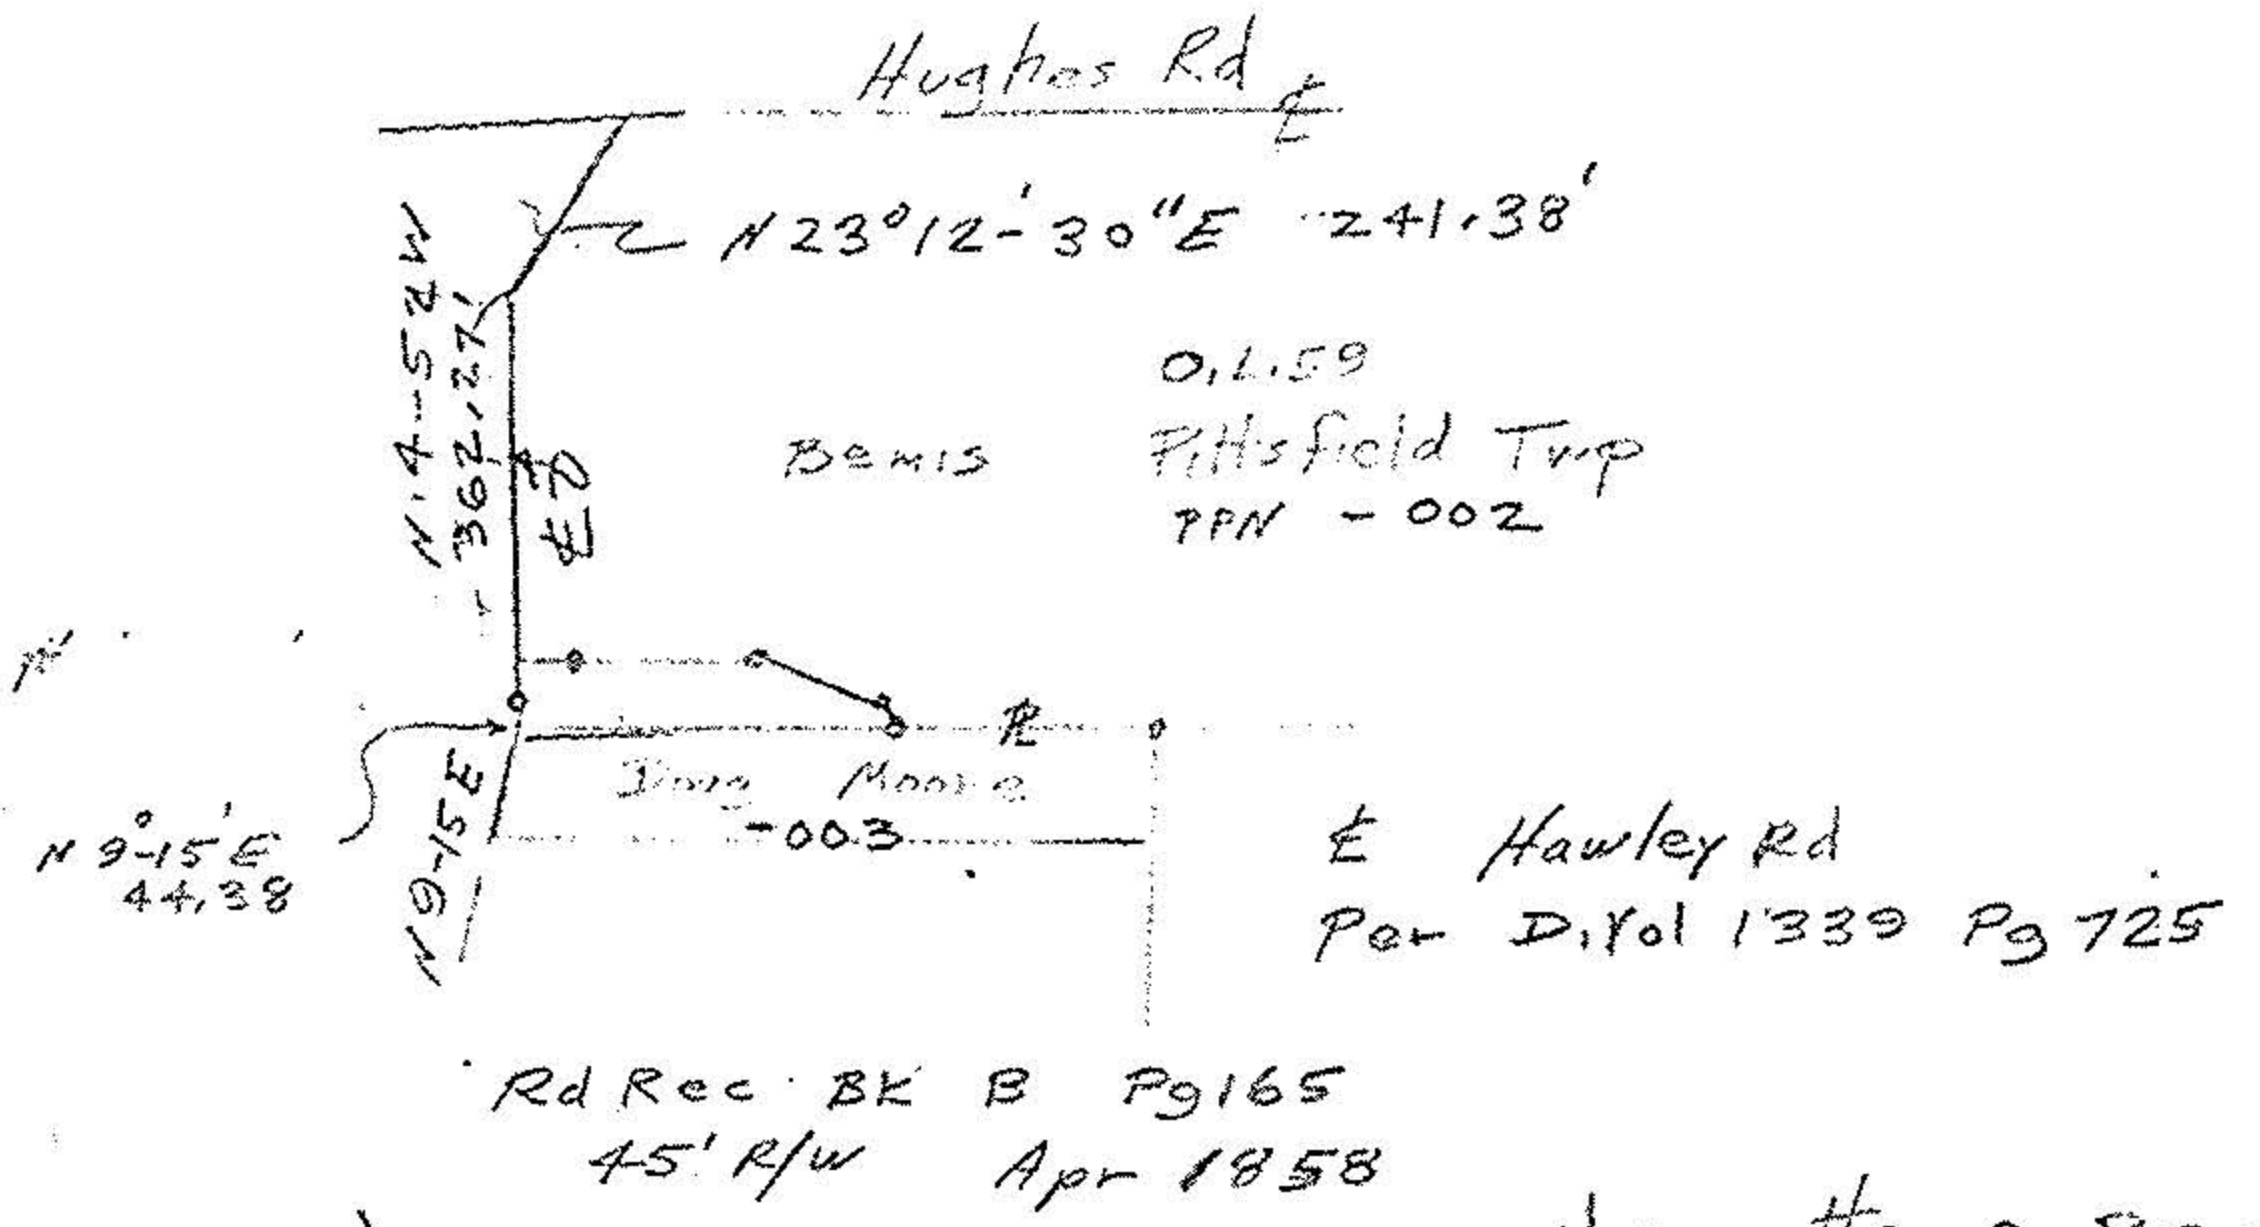 Hughes Rd ℄
N 23° 12'-30" E 241.38'
N-4-52 W
362.27'
℄
O.L.59
Bemis Pittsfield Twp
PPN - 002
N
℄
Doug Moore
-003
N 9-15 E
N 9°-15' E
44.38
℄ Hawley Rd
Per D.Vol 1339 Pg 725
Rd Rec. BK B Pg 165
45' R/W Apr 1858